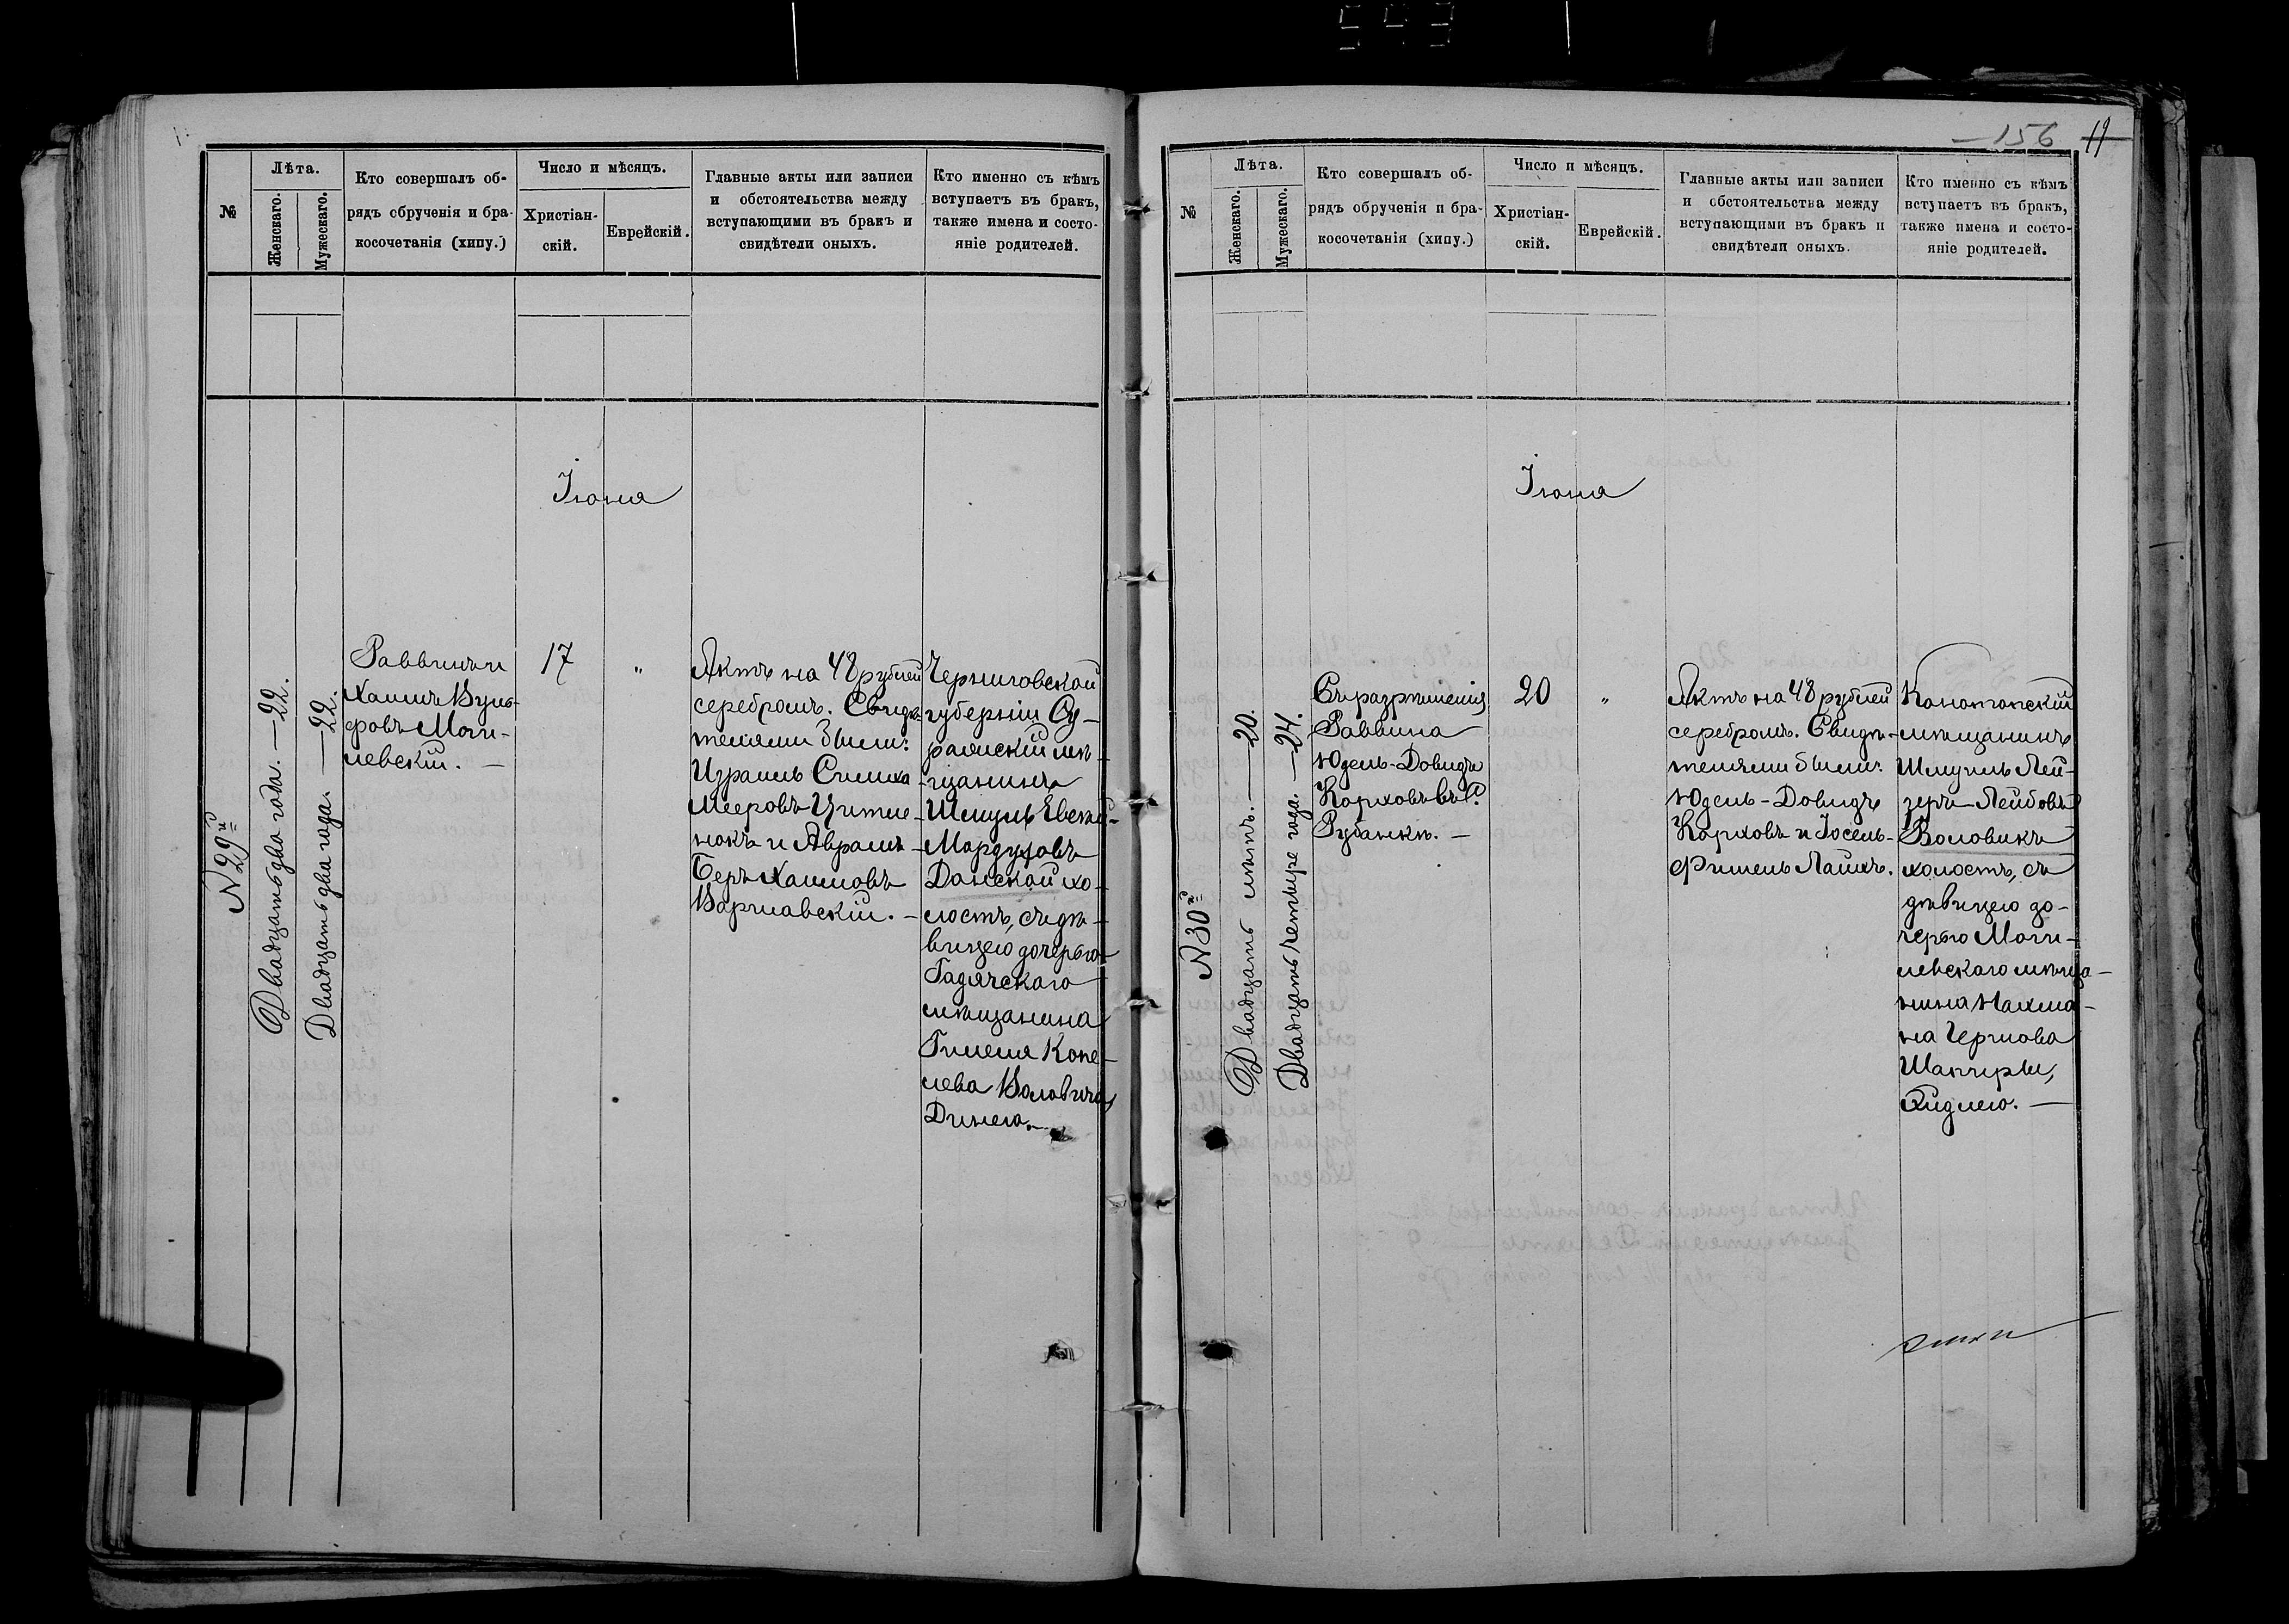 №
Лѣта.
Женскаго.
Мужескаго.
Кто совершалъ об-
рядъ обрученія и бра-
косочетанія (хипу.)
Число и мѣсяцъ.
Христіан-
скій.
Еврейскій.
Главные акты или записи
и обстоятельства между
вступающими въ бракъ и
свидѣтели оныхъ.
Кто именно съ кѣмъ
вступаетъ въ бракъ,
также имена и состо-
яніе родителей.
Іюня
N 29й
Двадцать два года. — 22.
Двадцать два года. — 22.
Раввинъ
Хаимъ Вуль-
фовъ Моги-
левскій. —
17
"
Актъ на 48 рублей
серебромъ. Свидѣ-
телями были:
Израиль Симха
Мееровъ
нокъ и Абрамъ-
Беръ Хаимовъ
Варшавскій. —
Черниговской
губерніи Су-
ражскій мѣ-
щанинъ
Шмуль
Мордуховъ
Донской хо-
лостъ, съ дѣ-
вицею дочерью
Гадячскаго
мѣщанина
Гилеля Копе-
лева Воловича
Динею. —
156 11
№
Лѣта.
Женскаго.
Мужескаго.
Кто совершалъ об-
рядъ обрученія и бра-
косочетанія (хипу.)
Число и мѣсяцъ.
Христіан-
скій.
Еврейскій.
Главные акты или записи
и обстоятельства между
вступающими въ бракъ и
свидѣтели оныхъ.
Кто именно съ кѣмъ
вступаетъ въ бракъ,
также имена и состо-
яніе родителей.
Іюня
N 30й
Двадцать лѣтъ. — 20.
Двадцать четыре года. — 24.
Съ разрѣшенія
Раввина
Юдель-Довидъ
Карховъ въ С.
Рубанкѣ. —
20
"
Актъ на 48 рублей
серебромъ. Свидѣ-
телями были:
Юдель-Довидъ
Карховъ и Іосель-
Фишель
Конотопскій
мѣщанинъ
Шмуиль Лей-
зеръ Лейбовъ
Воловикъ
холостъ, съ
дѣвицею до-
черью Моги-
левскаго мѣща-
нина Нахма-
на
Шапиры,